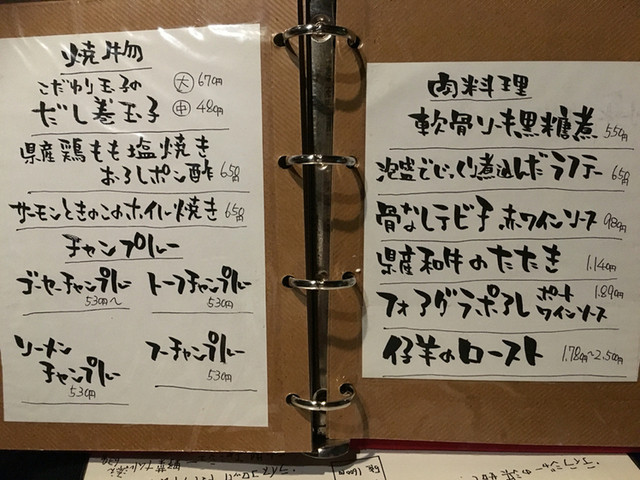 焼物
こだわり玉子の
だし巻玉子
大 670円
中 480円
県産鶏もも塩焼き
おろしポン酢 650円
サーモンときのこのホイル焼き 650円
チャンプルー
ゴーヤーチャンプルー
530円〜
トーフチャンプルー
530円
ソーメン
チャンプルー
530円
フーチャンプルー
530円
肉料理
軟骨ソーキ黒糖煮 550円
泡盛でじっくり煮込んだラフテー 650円
骨なしテビチ赤ワインソース 980円
県産和牛のたたき 1.140円
フォアグラポアレ ポート
ワインソース
1.890円
仔羊のロースト 1.780〜2.500円